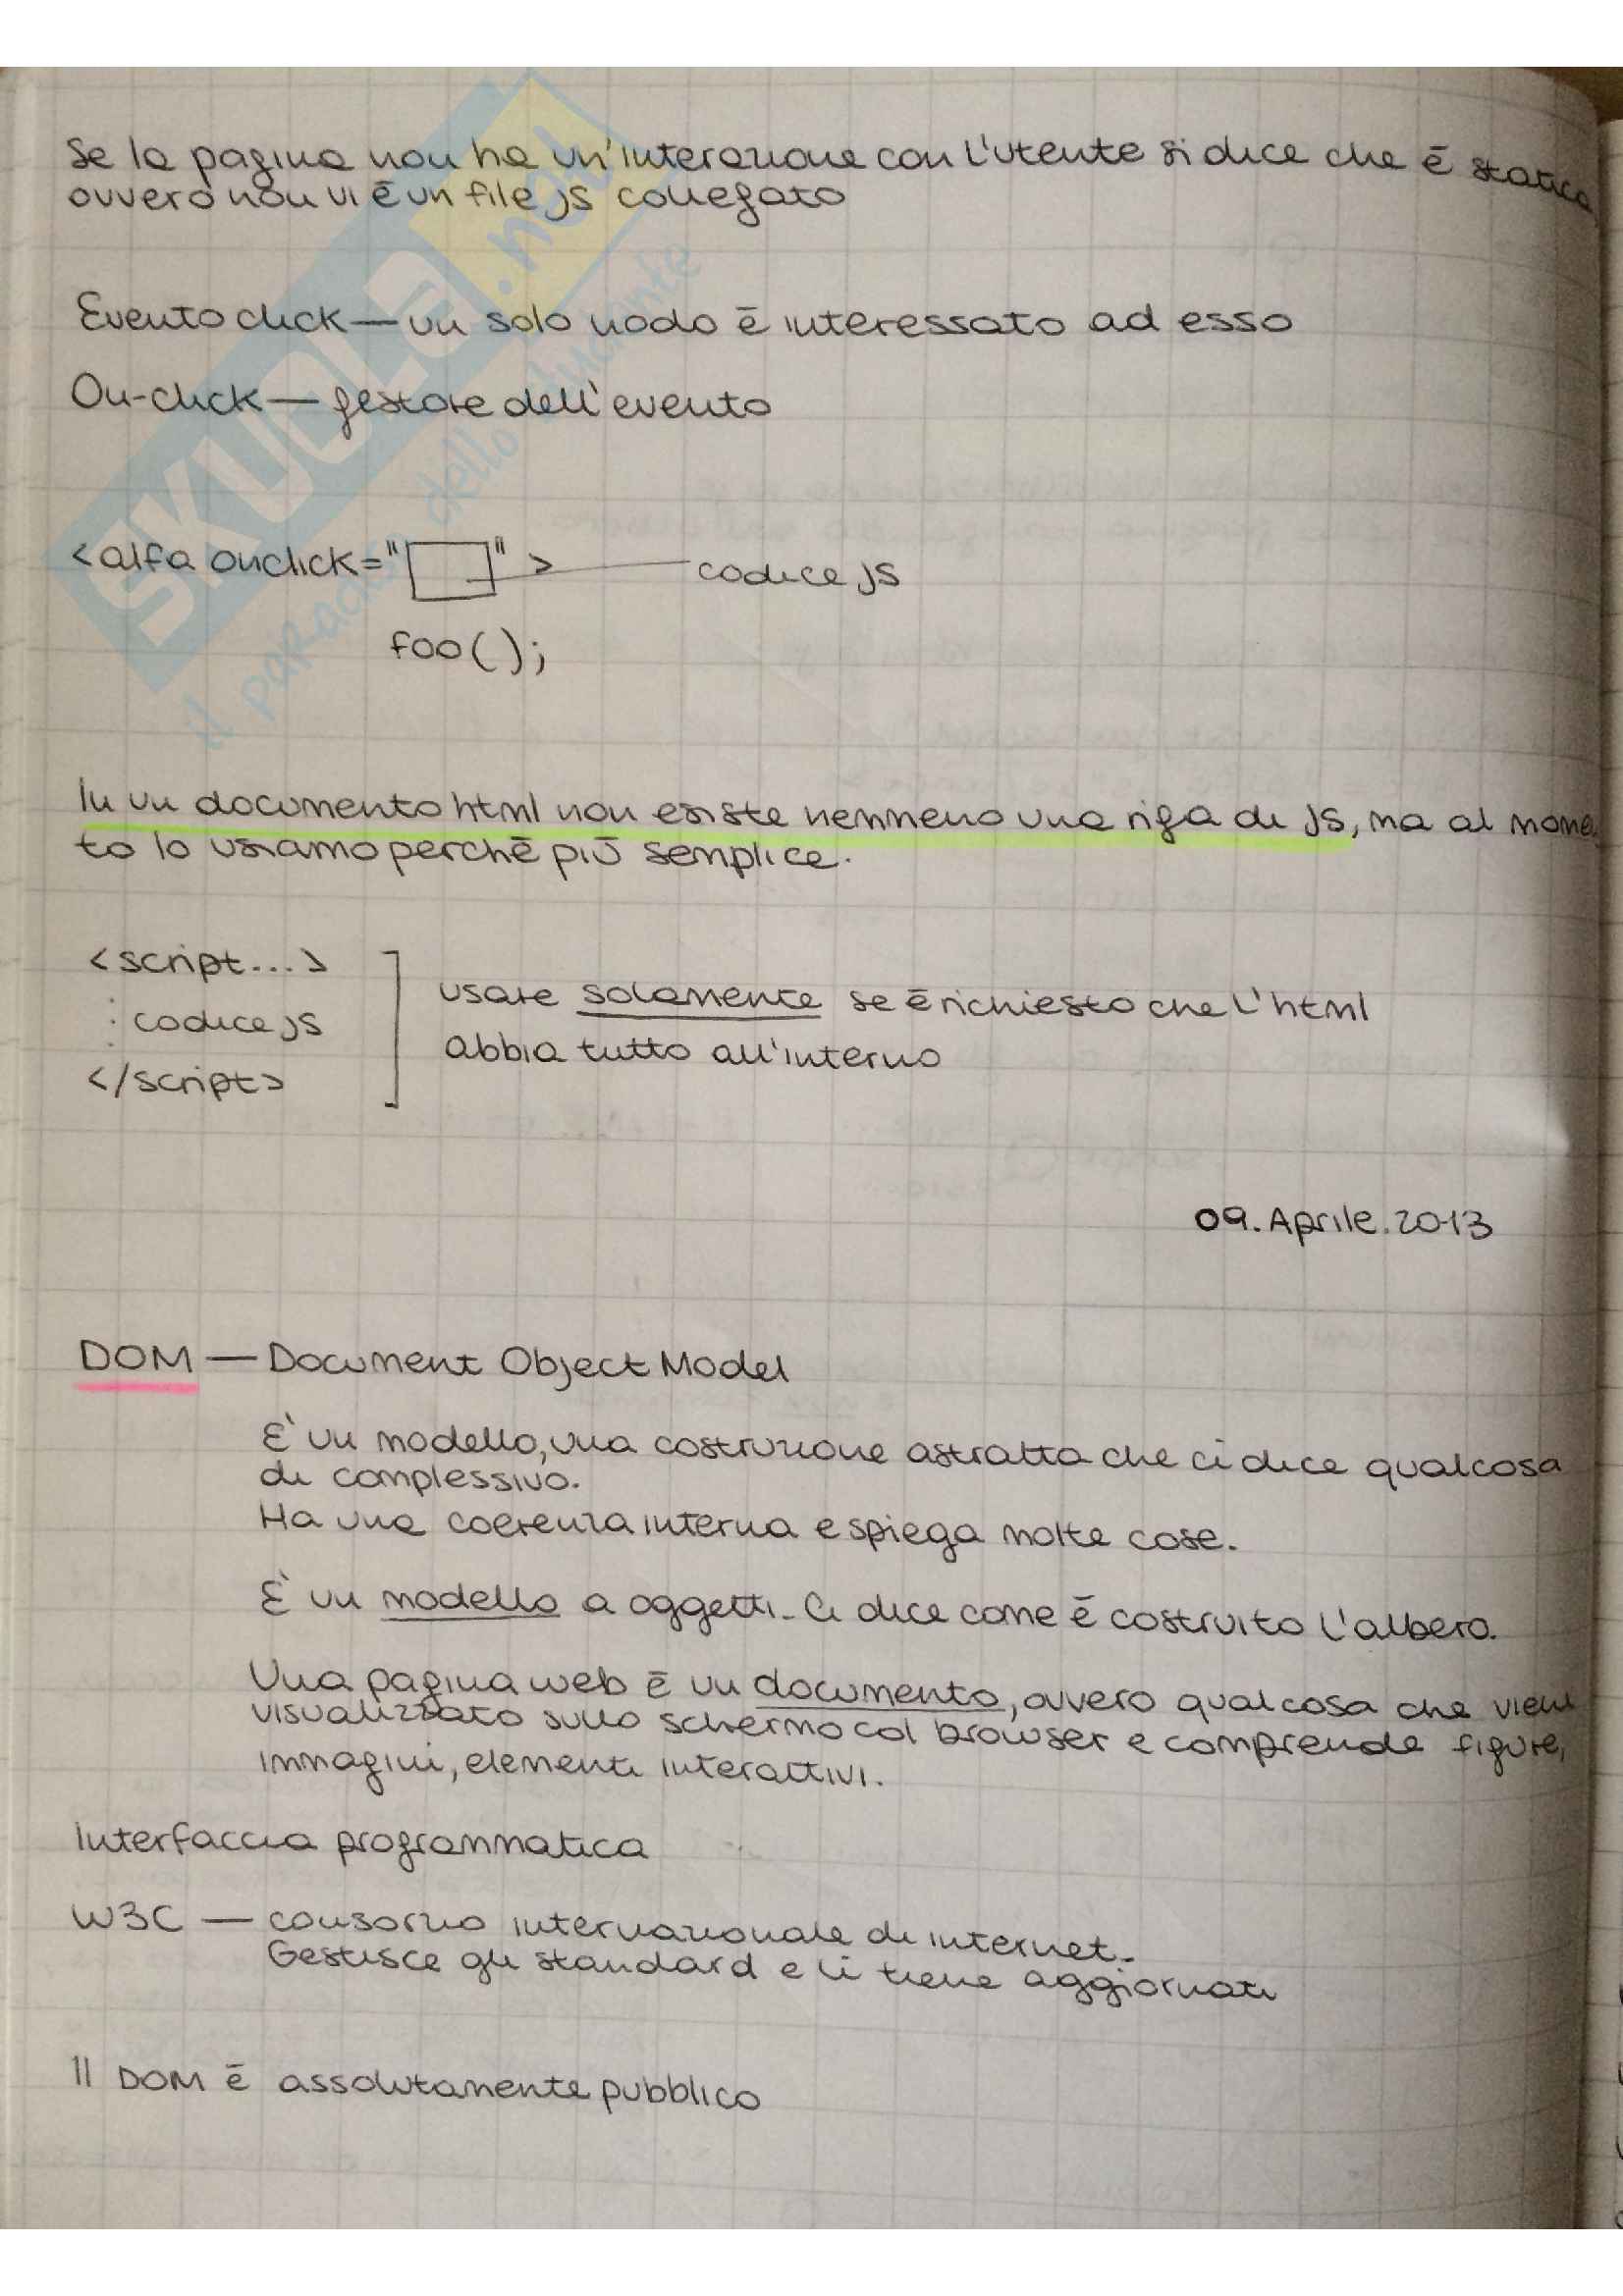 Se la pagina non ha un'interazione con l'utente si dice che è statica
ovvero non vi è un file js collegato
Evento click — un solo nodo è interessato ad esso
On-click — gestore dell'evento
<alfa onclick="    "> codice js
foo();
In un documento html non esiste nemmeno una riga di js, ma al momen
to lo usiamo perchè più semplice.
<script...>
: codice js
</script>
usare solamente se è richiesto che l'html
abbia tutto all'interno
09.Aprile.2013
DOM — Document Object Model
E' un modello, una costruzione astratta che ci dice qualcosa
di complessivo.
Ha una coerenza interna e spiega molte cose.
E' un modello a oggetti. Ci dice come è costruito l'albero.
Una pagina web è un documento, ovvero qualcosa che viene
visualizzato sullo schermo col browser e comprende figure,
immagini, elementi interattivi.
Interfaccia programmatica
W3C — consorzio internazionale di internet.
Gestisce gli standard e li tiene aggiornati
Il DOM è assolutamente pubblico
SKUOLA.net
il paradiso dello studente